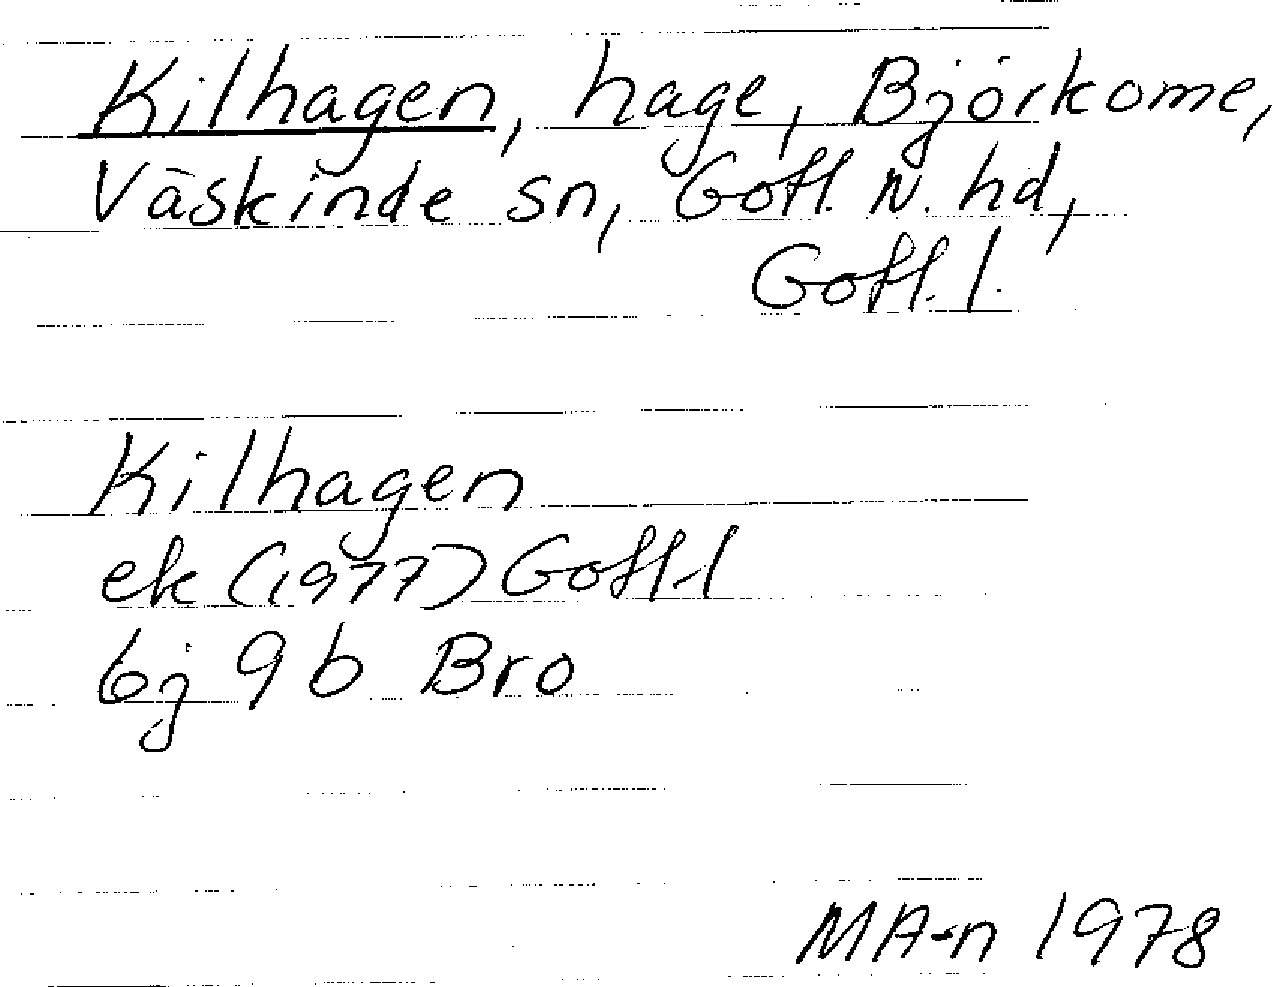 Kilhagen, hage, Björkome,
Väskinde sn, Gotl. N. hd,
Gotl. l.
Kilhagen
ek (1977) Gotl. l
6j 9b Bro
MA-n 1978